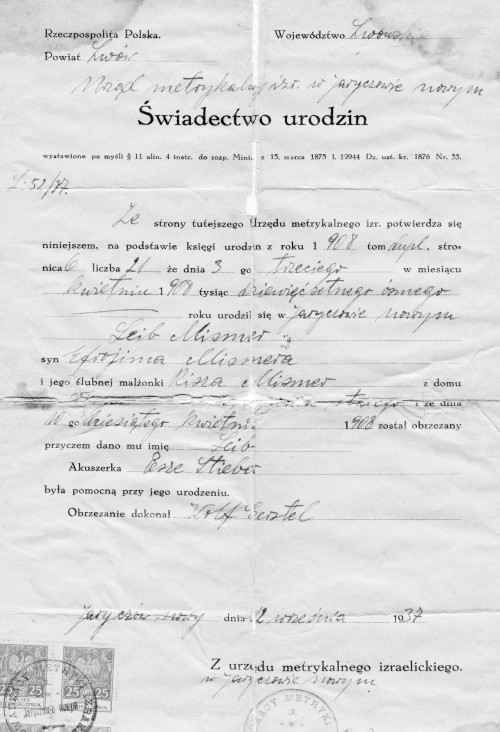 Rzeczpospolita Polska. Województwo Lwowskie
Powiat Lwów
Urząd metrykalny izr. w Jaryczowie Nowym
Świadectwo urodzin
wystawione po myśli § 11 alin. 4 instr. do rozp. Mini. z 15. marca 1875 l. 12944 Dz. ust. kr. 1876 Nr. 55.
L: 51/37.
Ze strony tutejszego Urzędu metrykalnego izr. potwierdza się
niniejszem, na podstawie księgi urodzin z roku 1908 tom dupl. stro-
nica 6 liczba 21 że dnia 3 go trzeciego w miesiącu
kwietniu 1908 tysiąc dziewięćsetnego ósmego
roku urodził się w Jaryczowie Nowym
Leib Mismer
syn Efroima Mismera
i jego ślubnej małżonki Rissa Mismer z domu
i że dnia
10 go dziesiątego kwietnia 1908 został obrzezany
przyczem dano mu imię Leib
Akuszerka Estze Stieber
była pomocną przy jego urodzeniu.
Obrzezanie dokonał Wolf Gerstel
Jaryczów Nowy dnia 12 września 1937
Z urzędu metrykalnego izraelickiego.
w Jaryczowie Nowym
25 25